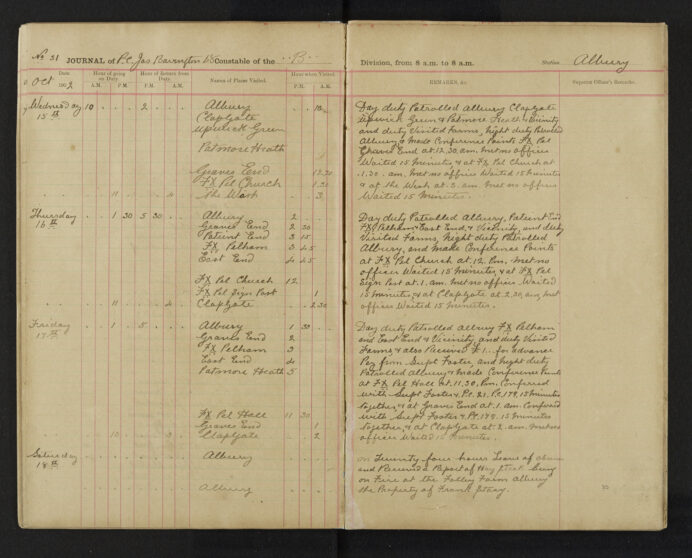 No 31 JOURNAL of P.C. Jas Barrington Constable of the B Division, from 8 a.m. to 8 a.m. Station Albury
Date Hour of going on Duty. Hour of return from Duty. Names of Places Visited. Hour when Visited. REMARKS, &c. Superior Officer's Remarks.
Oct 1902 A.M. P.M. A.M. P.M. P.M. A.M.
Wednesday 10 2 Albury 10
15th Clapgate
Upwick Green
Patmore Heath
Graves End 12.30
Fx Pel Church 1.30
11 4 The Wash 3
Day duty Patrolled Albury Clapgate
Upwick Green & Patmore Heath & Vicinity
and duty Visited Farms, Night duty Patrolled
Albury & Made Conference Points Fx Pel
Graves End at 12.30 am. met no officer
Waited 15 Minutes, & at Fx Pel Church at
1.30 am. met no officer Waited 15 Minutes
& at the Wash at 3 am met no officer
Waited 15 Minutes.
Thursday 1 30 5 30 Albury 2
16th Graves End 2 30
Patient End 3 15
Fx Pelham 3 45
East End 4 45
Fx Pel Church 12
Fx Pel Sign Post 1
11 4 Clapgate 2.30
Day duty Patrolled Albury, Patient End
Fx Pelham & East End, & Vicinity, and duty
Visited Farms, Night duty Patrolled
Albury, and Made Conference Points
at Fx Pel Church at 12. Pm. met no
officer Waited 15 Minutes & at Fx Pel
Sign Post at 1. am. met no officer. Waited
15 Minutes, & at Clapgate at 2.30 am, met no
officer Waited 15 Minutes.
Friday 1 5 Albury 1 30
17th Graves End 2
Fx Pelham 3
East End 4
Patmore Heath 5
Fx Pel Hall 11 30
Graves End 1
10 3 Clapgate 2
Day duty Patrolled Albury Fx Pelham
and East End & Vicinity, and duty Visited
Farms, & also Received £1.. for advance
Pay from Supt Foster, and Night duty
Patrolled Albury & Made Conference Points
at Fx Pel Hall at 11.30. Pm. Conferred
with Supt Foster & Ps. 21. Pc 179, 15 minutes
together, & at Graves End at 1. am Conferred
with Supt Foster & Pc 179. 15 Minutes
together, & at Clapgate at 2. am. met no
officer Waited 15 Minutes.
Saturday Albury
18th
Albury
on Twenty four hours Leave of
and Received a Report of Hay Stack being
on Fire at the Folley Farm Albury
the Property of Frank